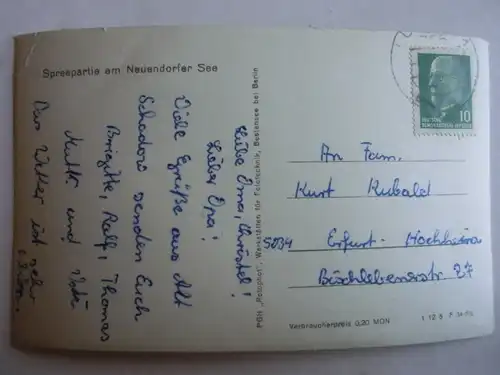 Spreepartie am Neuendorfer See
Liebe Oma, Christel!
Lieber Opa!
Viele Grüße aus Alt
Schadow senden Euch
Brigitte, Ralf, Thomas
Mutti und Vati
Das Wetter ist sehr
schön.
PGH „Rotophot", Werkstätten für Fototechnik, Bestensee bei Berlin
10
DEUTSCHE
DEMOKRATISCHE REPUBLIK
An Fam.
Kurt Kubald
5034 Erfurt-Hochheim
Bischlebenerstr. 27
Verbraucherpreis 0,20 MDN